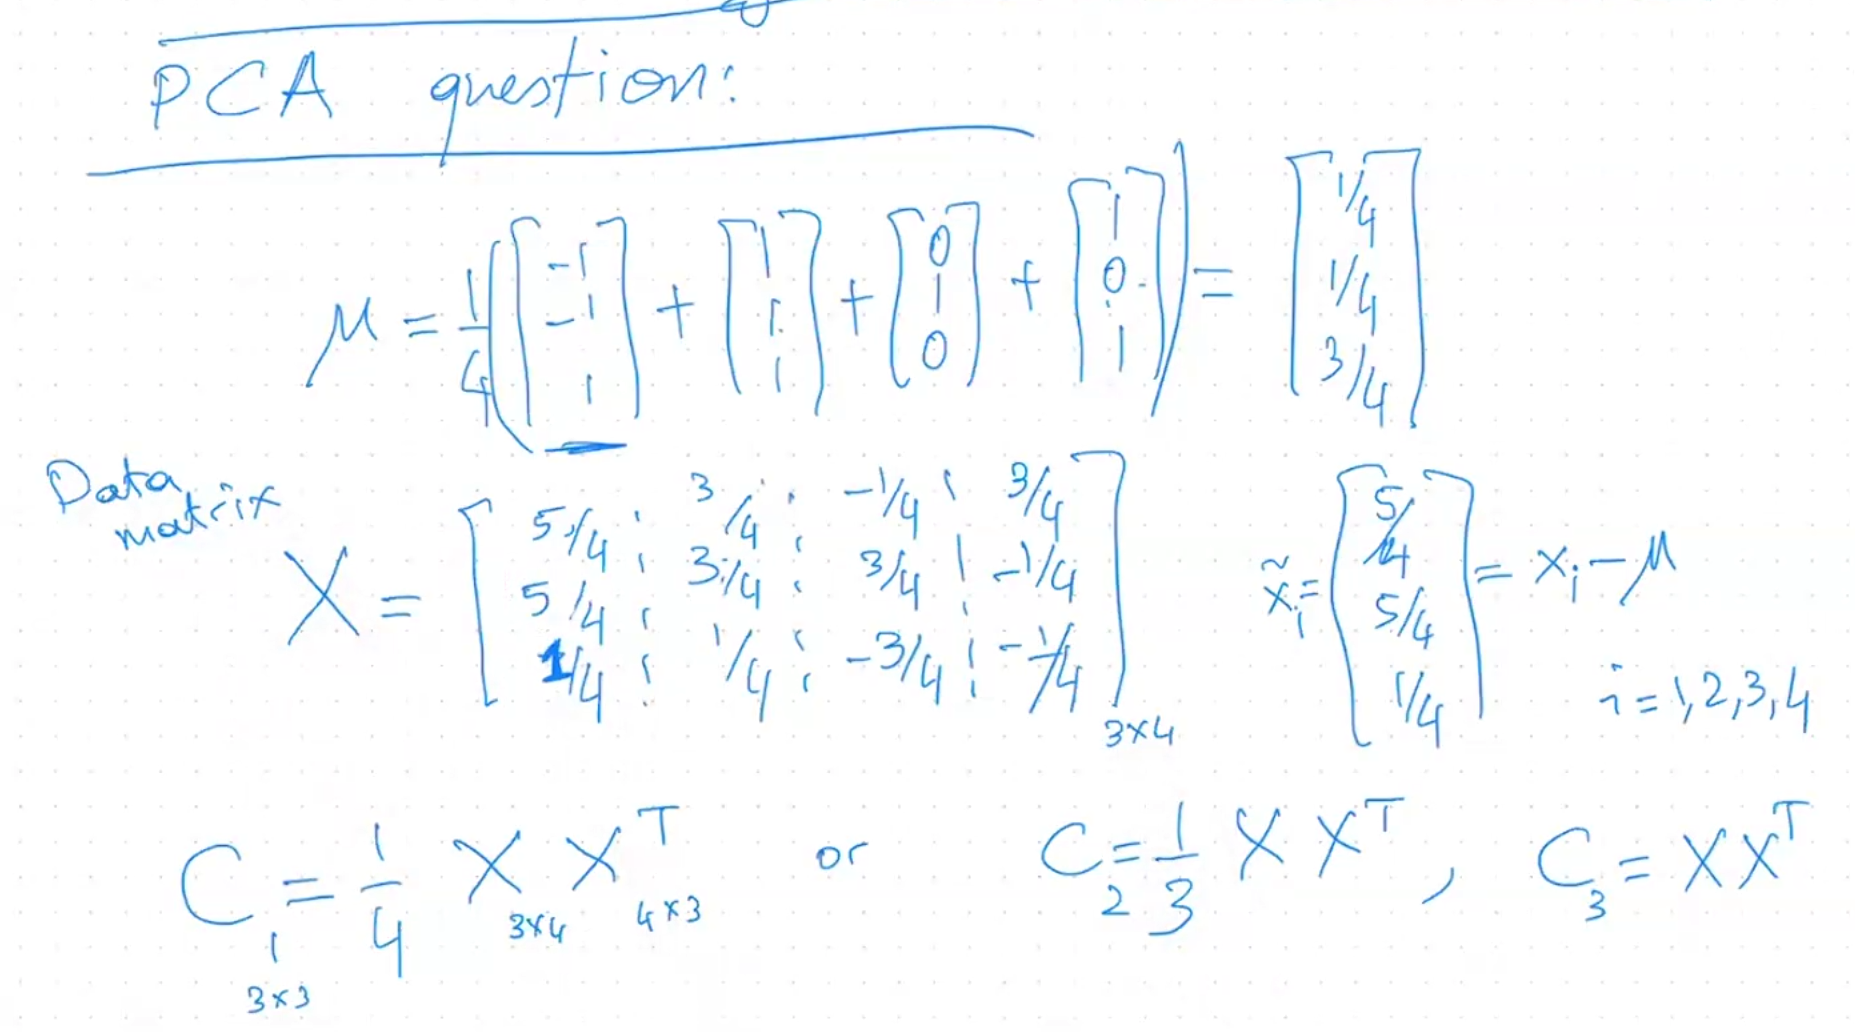 PCA question:
μ = 1/4 ( [-1 -1 1] + [1 1 1] + [0 1 0] + [1 0 1] ) = [1/4 1/4 3/4]
Data matrix
X = [5/4 3/4 -1/4 3/4
5/4 3/4 3/4 -1/4
1/4 1/4 -3/4 -1/4] 3×4
x̃i = [5/4 5/4 1/4] = xi - μ
i = 1,2,3,4
C1 = 1/4 X X^T or C2 = 1/3 X X^T , C3 = X X^T
3×3 3×4 4×3